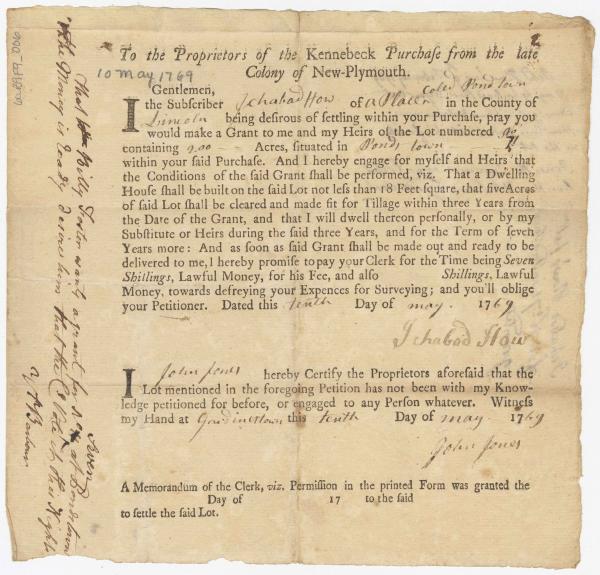 2
To the Proprietors of the Kennebeck Purchase from the late
Colony of New-Plymouth.
10 May 1769
Gentlemen,
I the Subscriber Ichabad How of a Place Caled Pondtown in the County of
Lincoln being desirous of settling within your Purchase, pray you
would make a Grant to me and my Heirs of the Lot numbered
containing 200 Acres, situated in Ponds town
within your said Purchase. And I hereby engage for myself and Heirs that
the Conditions of the said Grant shall be performed, viz. That a Dwelling
House shall be built on the said Lot not less than 18 Feet square, that five Acres
of said Lot shall be cleared and made fit for Tillage within three Years from
the Date of the Grant, and that I will dwell thereon personally, or by my
Substitute or Heirs during the said three Years, and for the Term of seven
Years more: And as soon as said Grant shall be made out and ready to be
delivered to me, I hereby promise to pay your Clerk for the Time being Seven
Shillings, Lawful Money, for his Fee, and also Shillings, Lawful
Money, towards defreying your Expences for Surveying; and you'll oblige
your Petitioner. Dated this tenth Day of may. 1769
Ichabad How
I John Jones hereby Certify the Proprietors aforesaid that the
Lot mentioned in the foregoing Petition has not been with my Know-
ledge petitioned for before, or engaged to any Person whatever. Witness
my Hand at Gardinerstown this tenth Day of may. 1769
John Jones
A Memorandum of the Clerk, viz. Permission in the printed Form was granted the
Day of 17 to the said
to settle the said Lot.
That Billy Foster want a grant for Seven at Pondstown
the Money is ready desires him that the